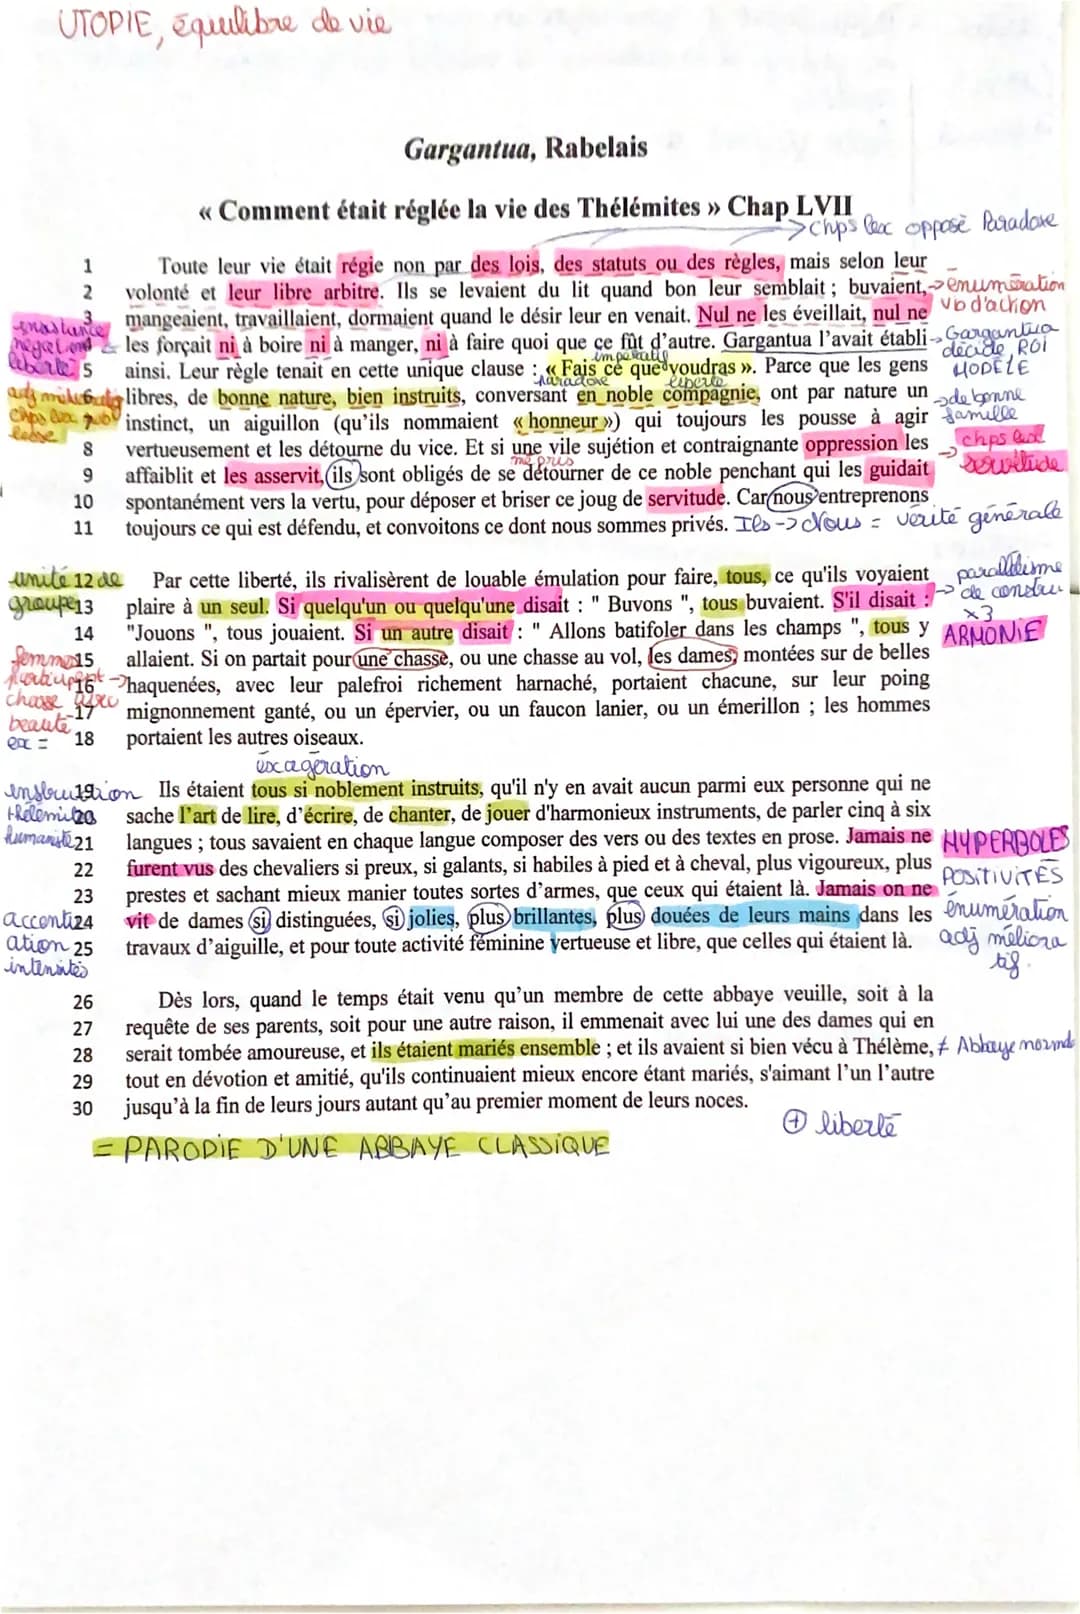 UTOPIE, équilibre de vie
Gargantua, Rabelais
« Comment était réglée la vie des Thélémites » Chap LVII
->chps lex opposé Paradoxe
1 Toute leur vie était régie non par des lois, des statuts ou des règles, mais selon leur
2 volonté et leur libre arbitre. Ils se levaient du lit quand bon leur semblait ; buvaient, ->énumération
3 mangeaient, travaillaient, dormaient quand le désir leur en venait. Nul ne les éveillait, nul ne vb d'action
les forçait ni à boire ni à manger, ni à faire quoi que ce fût d'autre. Gargantua l'avait établi -> Gargantua décide, ROI MODÈLE
impératif
liberté 5 ainsi. Leur règle tenait en cette unique clause : « Fais ce que voudras ». Parce que les gens
paradoxe liberté
6 libres, de bonne nature, bien instruits, conversant en noble compagnie, ont par nature un ->de bonne famille
chps lex noblesse 7 instinct, un aiguillon (qu'ils nommaient « honneur ») qui toujours les pousse à agir
8 vertueusement et les détourne du vice. Et si une vile sujétion et contraignante oppression les -> chps lex servitude
mépris
9 affaiblit et les asservit, ils sont obligés de se détourner de ce noble penchant qui les guidait
10 spontanément vers la vertu, pour déposer et briser ce joug de servitude. Car nous entreprenons
11 toujours ce qui est défendu, et convoitons ce dont nous sommes privés. Ils -> Nous = vérité générale
unité de groupe
12 Par cette liberté, ils rivalisèrent de louable émulation pour faire, tous, ce qu'ils voyaient
13 plaire à un seul. Si quelqu'un ou quelqu'une disait : " Buvons ", tous buvaient. S'il disait : -> parallélisme de constru. x3
14 "Jouons ", tous jouaient. Si un autre disait : " Allons batifoler dans les champs ", tous y ARMONIE
15 allaient. Si on partait pour une chasse, ou une chasse au vol, les dames, montées sur de belles
femmes participent -> chasse avec beauté
16 haquenées, avec leur palefroi richement harnaché, portaient chacune, sur leur poing
17 mignonnement ganté, ou un épervier, ou un faucon lanier, ou un émerillon ; les hommes
ex = 18 portaient les autres oiseaux.
exagération
instruction thélémites humaniste
19 Ils étaient tous si noblement instruits, qu'il n'y en avait aucun parmi eux personne qui ne
20 sache l'art de lire, d'écrire, de chanter, de jouer d'harmonieux instruments, de parler cinq à six
21 langues ; tous savaient en chaque langue composer des vers ou des textes en prose. Jamais ne HYPERBOLES
22 furent vus des chevaliers si preux, si galants, si habiles à pied et à cheval, plus vigoureux, plus POSITIVITÉS
23 prestes et sachant mieux manier toutes sortes d'armes, que ceux qui étaient là. Jamais on ne
accentuation intensités
24 vit de dames si distinguées, si jolies, plus brillantes, plus douées de leurs mains dans les énumération
25 travaux d'aiguille, et pour toute activité féminine vertueuse et libre, que celles qui étaient là. adj mélioratif.
26 Dès lors, quand le temps était venu qu'un membre de cette abbaye veuille, soit à la
27 requête de ses parents, soit pour une autre raison, il emmenait avec lui une des dames qui en
28 serait tombée amoureuse, et ils étaient mariés ensemble ; et ils avaient si bien vécu à Thélème, ≠ Abbaye normd
29 tout en dévotion et amitié, qu'ils continuaient mieux encore étant mariés, s'aimant l'un l'autre
30 jusqu'à la fin de leurs jours autant qu'au premier moment de leurs noces.
⊕ liberté
= PARODIE D'UNE ABBAYE CLASSIQUE